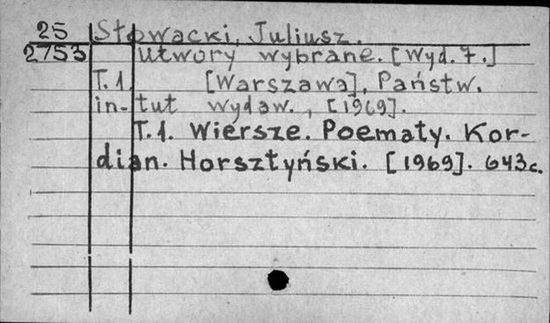 25 Słowacki, Juliusz.
2753 Utwory wybrane. [Wyd. 7.]
T. 1 [Warszawa], Państw.
in-tut wydaw., [1969].
T.1. Wiersze. Poematy. Kor-
dian. Horsztyński. [1969]. 643c.